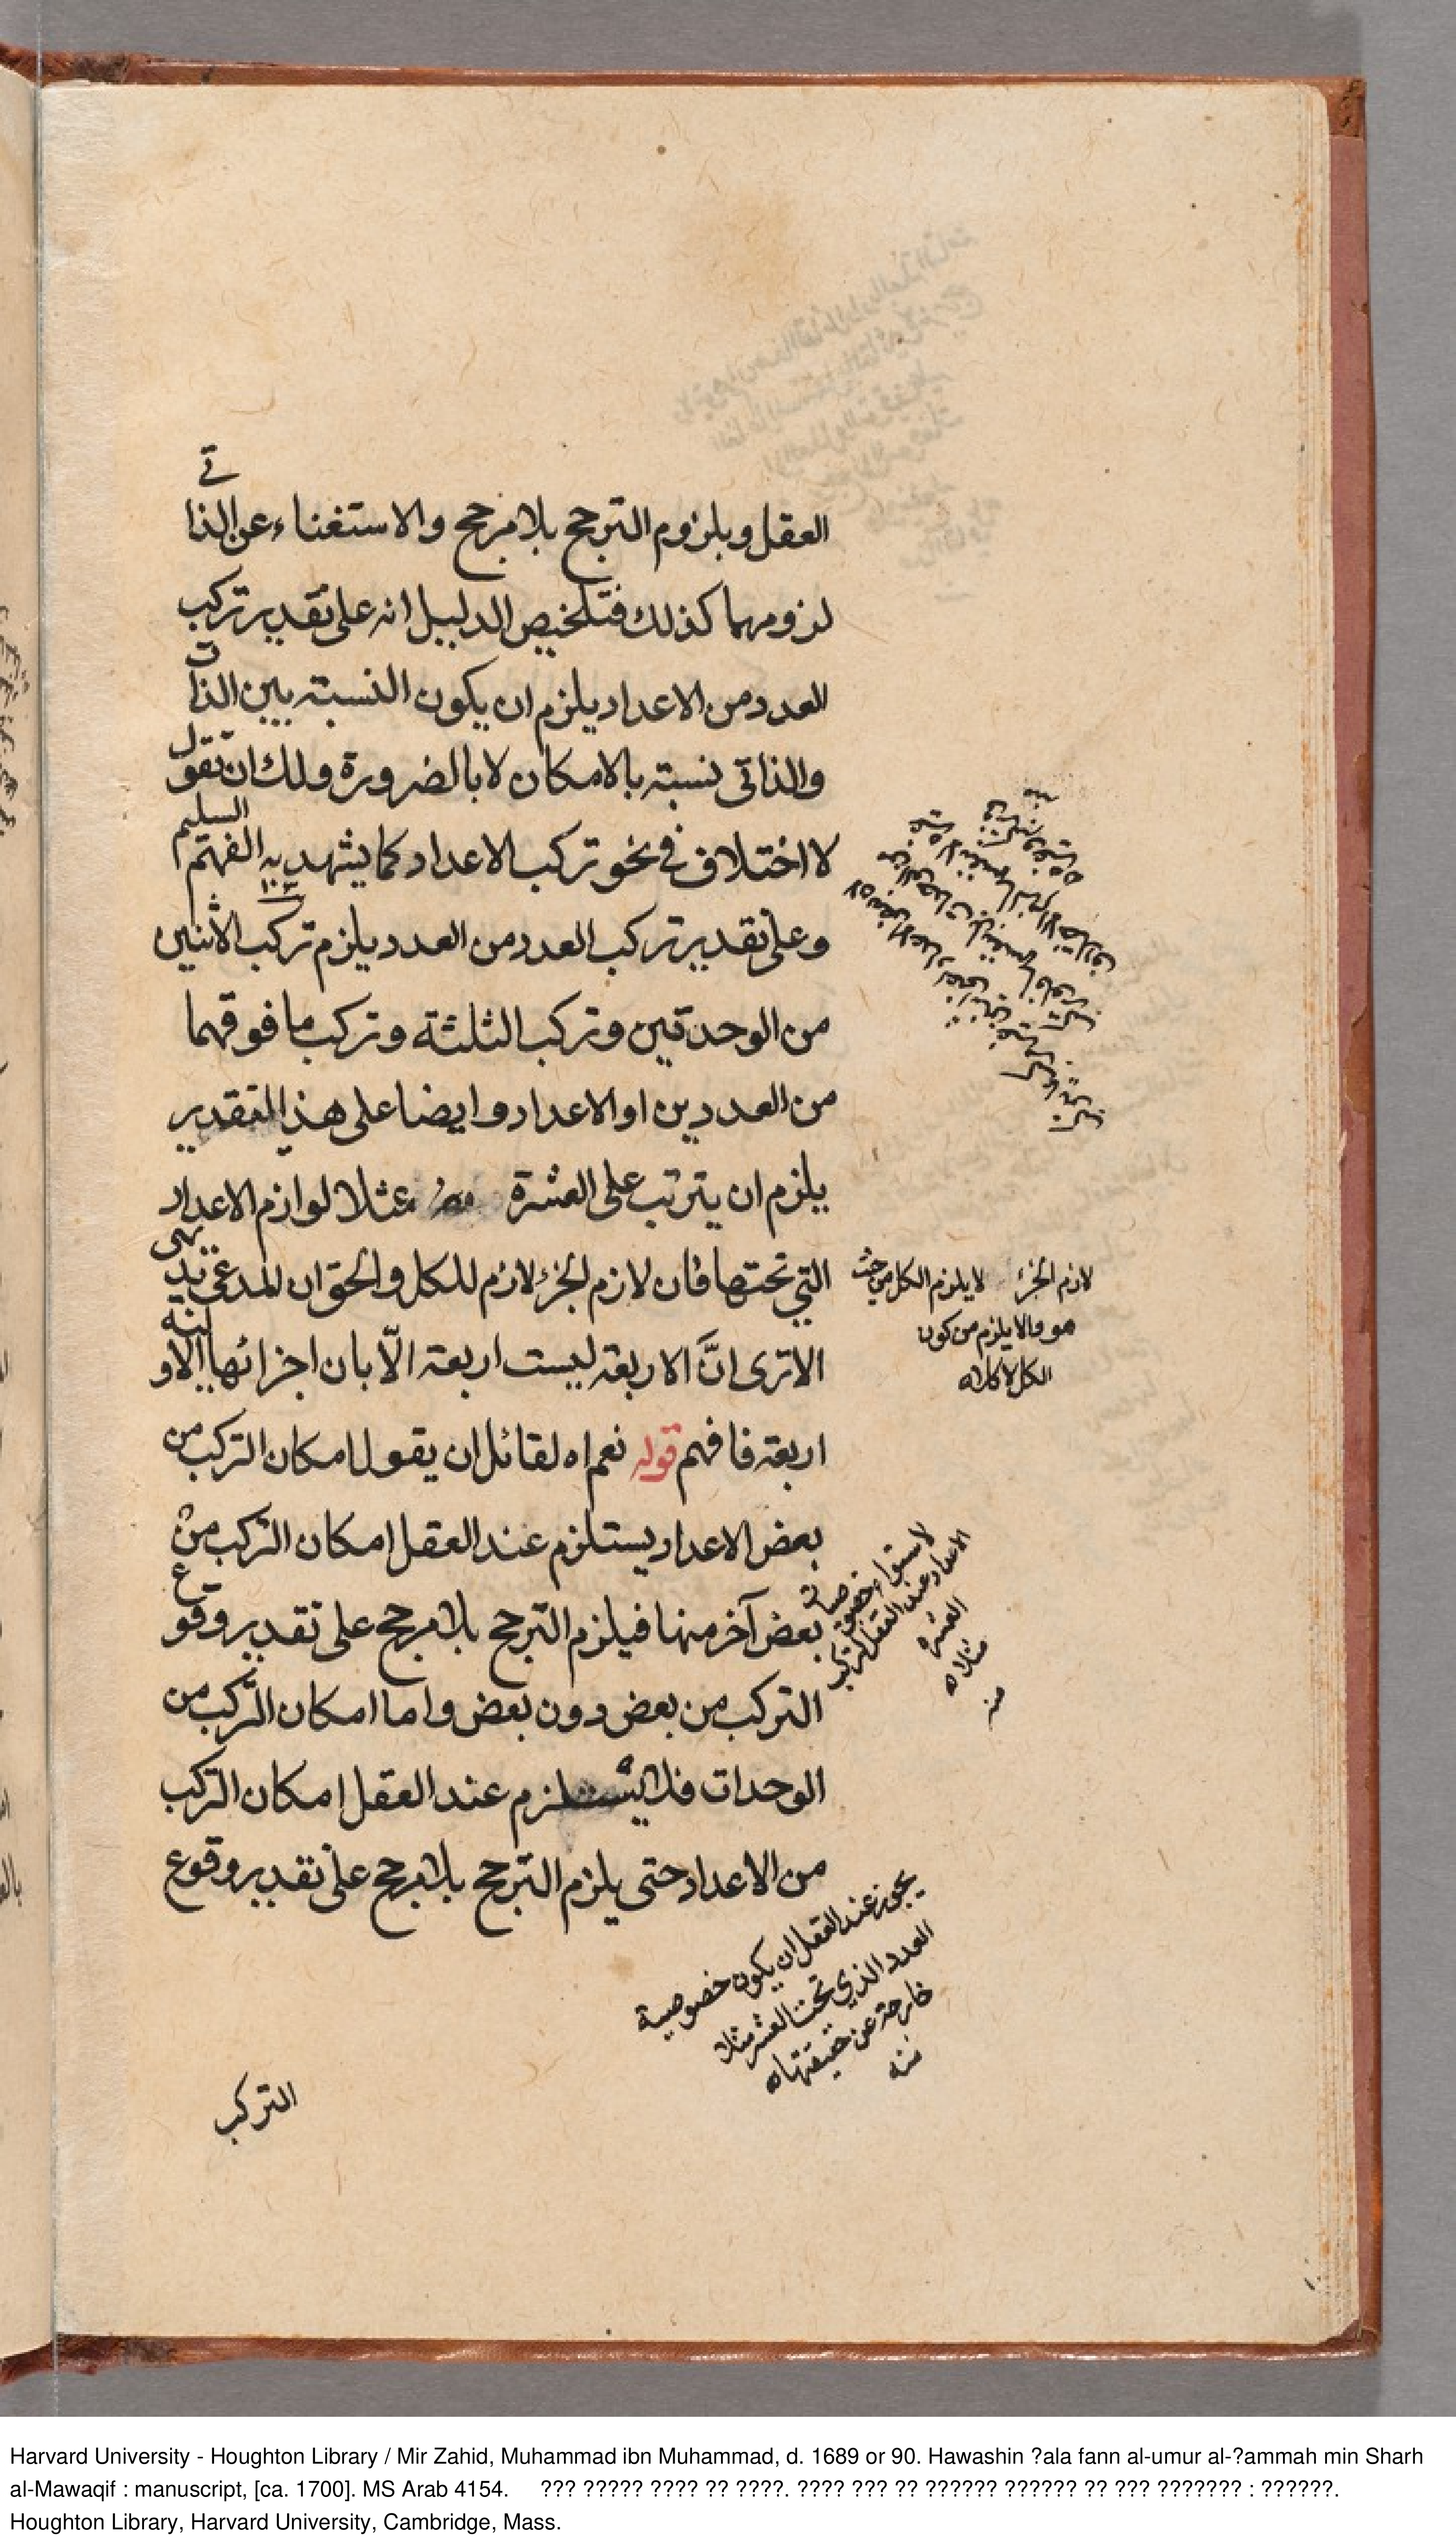 العقل وبلزوم الترجح بلا مرجح والاستغناء عن الذاتي
لزومهما كذلك فتلخيص الدليل انه على تقدير تركب
العدد من الاعداد يلزم ان يكون النسبة بين الذات
والذاتى نسبة بالامكان لا بالضرورة ولك ان تقول
لا اختلاف فى نحو تركب الاعداد كما يشهد به الفهم السليم
وعلى تقدير تركب العدد من العدد يلزم تركب الاثنين
من الوحدتين وتركب الثلثة وتركب ما فوقهما
من العددين او الاعداد وايضا على هذا التقدير
يلزم ان يترتب على العشرة مثلا لوازم الاعداد
التي تحتها فان لازم الجزء لازم للكل والحق ان المدعى بديهى
الا ترى انّ الاربعة ليست اربعة الّا بان اجزائها الاولية
اربعة فافهم قوله نعم اه لقائل ان يقول امكان التركب من
بعض الاعداد يستلزم عند العقل امكان التركب من
بعض آخر منها فيلزم الترجح بلا مرجح على تقدير وقوع
التركب من بعض دون بعض واما امكان التركب من
الوحدات فلا يستلزم عند العقل امكان التركب
من الاعداد حتى يلزم الترجح بلا مرجح على تقدير وقوع
التركب
لازم الجزء لا يلزم الكل من حيث
هو والا يلزم من كون
الكل
لاستواء خصوصيات
الاعداد عند العقل لتركب
العشرة
مثلا اه
منه
يجوز عند العقل ان يكون خصوصية
العدد الذي تحت العشر مثلا
خارجة عن حقيقتها اه
منه
Harvard University - Houghton Library / Mir Zahid, Muhammad ibn Muhammad, d. 1689 or 90. Hawashin ?ala fann al-umur al-?ammah min Sharh
al-Mawaqif : manuscript, [ca. 1700]. MS Arab 4154. ??? ????? ???? ?? ????. ???? ??? ?? ?????? ?????? ?? ??? ??????? : ??????.
Houghton Library, Harvard University, Cambridge, Mass.